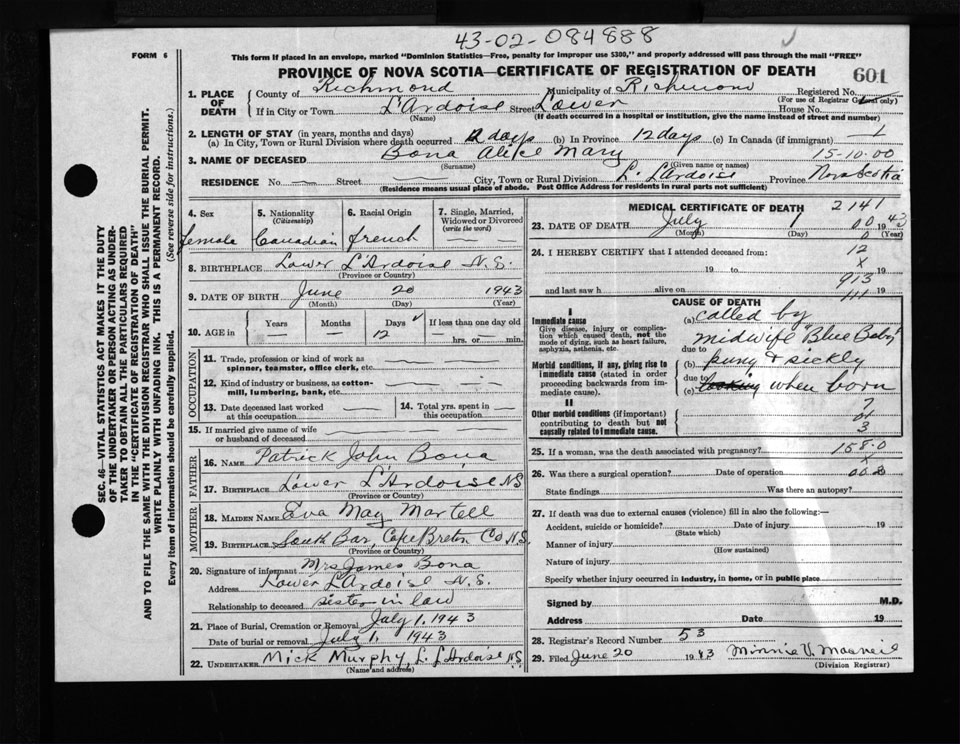 43-02-084888
FORM 6
This form if placed in an envelope, marked "Dominion Statistics—Free, penalty for improper use $300," and properly addressed will pass through the mail "FREE"
PROVINCE OF NOVA SCOTIA—CERTIFICATE OF REGISTRATION OF DEATH
601
1. PLACE OF DEATH
County of Richmond Municipality of Richmond Registered No.
(For use of Registrar General only)
If in City or Town L'Ardoise Street Lower House No.
(Name) (If death occurred in a hospital or institution, give the name instead of street and number)
2. LENGTH OF STAY (in years, months and days)
(a) In City, Town or Rural Division where death occurred 12 days (b) In Province 12 days (c) In Canada (if immigrant)
3. NAME OF DECEASED Bona Alice Mary 15-10.00
(Surname) (Given name or names)
RESIDENCE No. — Street — City, Town or Rural Division L. L'Ardoise Province Nova Scotia
(Residence means usual place of abode. Post Office Address for residents in rural parts not sufficient)
4. Sex female
5. Nationality (Citizenship) Canadian
6. Racial Origin french
7. Single, Married, Widowed or Divorced (write the word) — —
8. BIRTHPLACE Lower L'Ardoise N.S.
(Province or Country)
9. DATE OF BIRTH June 20 1943
(Month) (Day) (Year)
10. AGE in Years — Months — Days 12 If less than one day old
hrs. or min.
OCCUPATION
11. Trade, profession or kind of work as spinner, teamster, office clerk, etc.
12. Kind of industry or business, as cotton-mill, lumbering, bank, etc.
13. Date deceased last worked at this occupation
14. Total yrs. spent in this occupation
15. If married give name of wife or husband of deceased
FATHER
16. NAME Patrick John Bona
17. BIRTHPLACE Lower L'Ardoise NS
(Province or Country)
MOTHER
18. MAIDEN NAME Eva May Martell
19. BIRTHPLACE South Bar, Cape Breton Co N.S.
(Province or Country)
20. Signature of informant Mrs James Bona
Address Lower L'Ardoise N.S.
Relationship to deceased sister in law
21. Place of Burial, Cremation or Removal July 1, 1943
Date of burial or removal July 1, 1943
22. UNDERTAKER Mick Murphy, L. L'Ardoise NS
(Name and address)
MEDICAL CERTIFICATE OF DEATH 2141
23. DATE OF DEATH July 1 1943
(Month) (Day) (Year)
24. I HEREBY CERTIFY that I attended deceased from: 12
19 to 19
913
and last saw h alive on 19
CAUSE OF DEATH
I
Immediate cause
Give disease, injury or complication which caused death, not the mode of dying, such as heart failure, asphyxia, asthenia, etc.
(a) called by
midwife "Blue Baby"
due to
Morbid conditions, if any, giving rise to immediate cause (stated in order proceeding backwards from immediate cause).
(b) puny & sickly
due to
(c) looking when born
II
Other morbid conditions (if important) contributing to death but not causally related to immediate cause.
25. If a woman, was the death associated with pregnancy? 158.0
26. Was there a surgical operation? Date of operation
State findings Was there an autopsy?
27. If death was due to external causes (violence) fill in also the following:—
Accident, suicide or homicide? Date of injury 19
(State which)
Manner of injury
(How sustained)
Nature of injury
Specify whether injury occurred in industry, in home, or in public place
Signed by M.D.
Address Date 19
28. Registrar's Record Number 53
29. Filed June 20 1943 Minnie V. Macneil
(Division Registrar)
SEC. 46—VITAL STATISTICS ACT MAKES IT THE DUTY
OF THE UNDERTAKER OR PERSON ACTING AS UNDER-
TAKER TO OBTAIN ALL THE PARTICULARS REQUIRED
IN THE "CERTIFICATE OF REGISTRATION OF DEATH"
AND TO FILE THE SAME WITH THE DIVISION REGISTRAR WHO SHALL ISSUE THE BURIAL PERMIT.
WRITE PLAINLY WITH UNFADING INK. THIS IS A PERMANENT RECORD.
Every item of information should be carefully supplied. (See reverse side for instructions.)